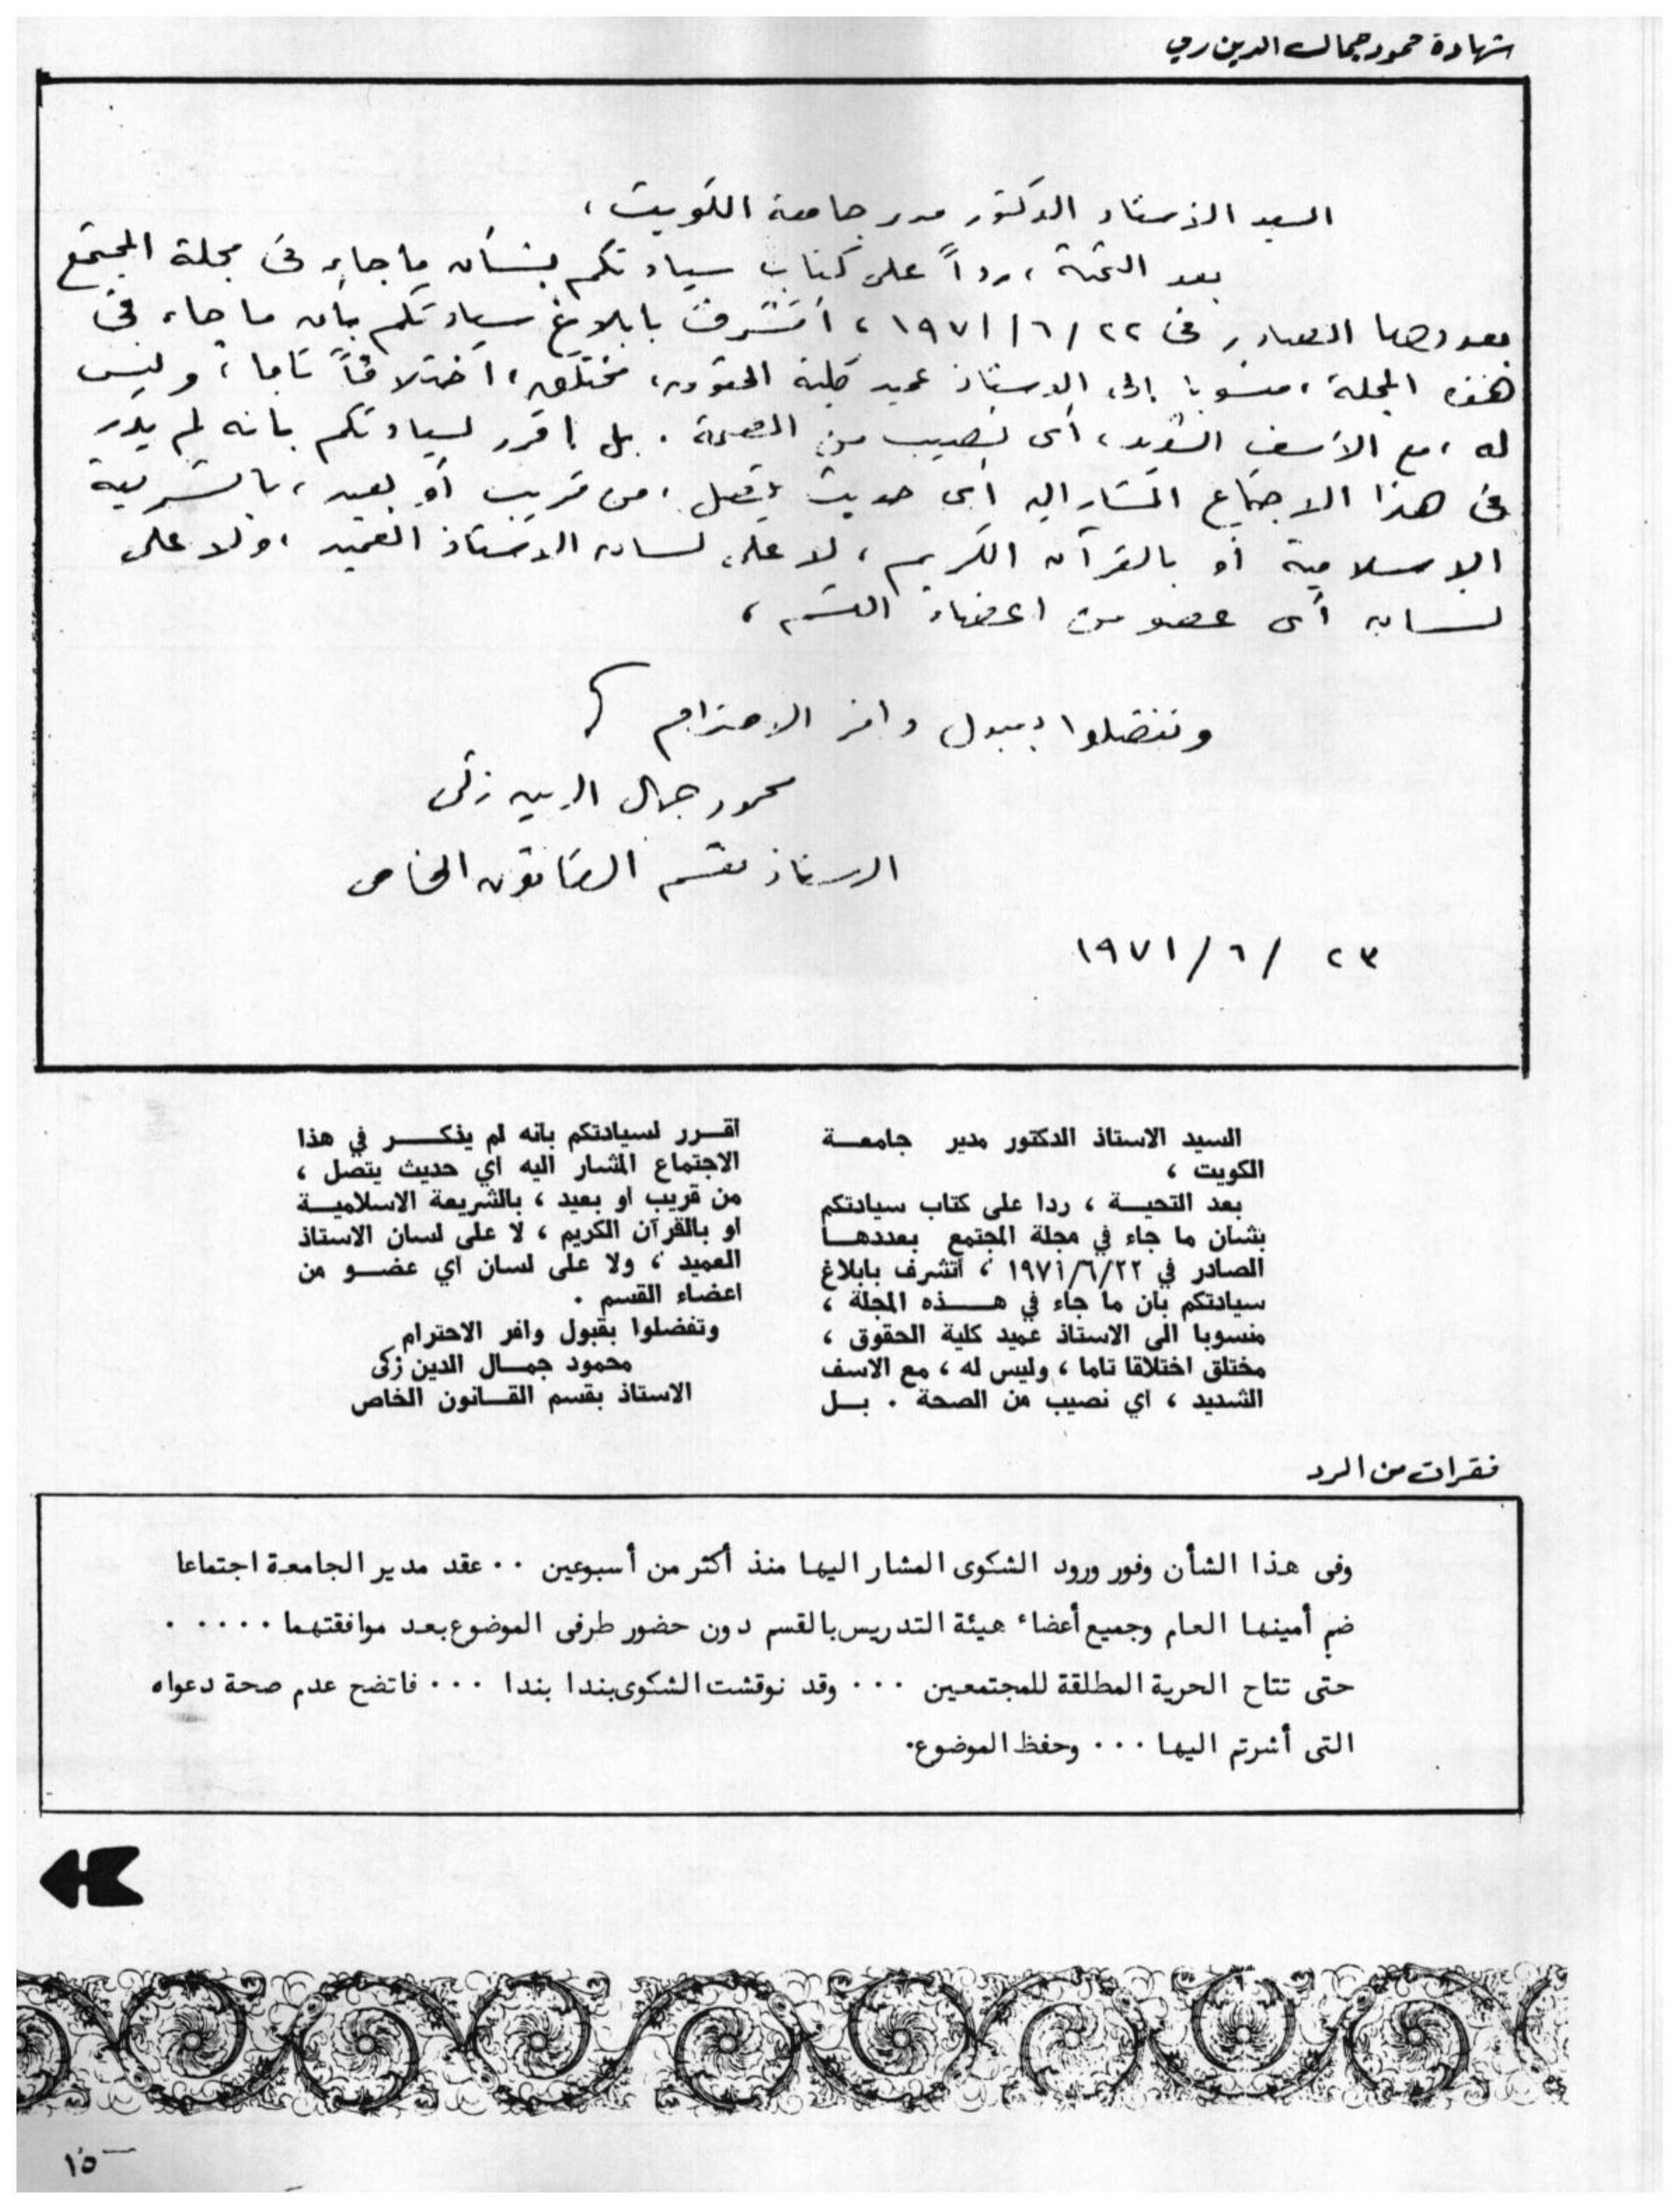 شهادة محمود جمال الدين زكي
السيد الأستاذ الدكتور مدير جامعة الكويت ،
بعد التحية ، رداً على كتاب سيادتكم بشأن ما جاء فى مجلة المجتمع
بعددها الصادر فى ٢٢ / ٦ / ١٩٧١ ، أتشرف بابلاغ سيادتكم بأن ما جاء فى
هذه المجلة ، منسوبا إلى الاستاذ عميد كلية الحقوق ، مختلق ، اختلاقاً تاما ، وليس
له ، مع الأسف الشديد ، أى نصيب من الصحة . بل اقرر لسيادتكم بانه لم يدر
فى هذا الاجتماع المشار اليه أى حديث يتصل ، من قريب أو بعيد ، بالشريعة
الإسلامية أو بالقرآن الكريم ، لا على لسان الاستاذ العميد ، ولا على
لسان أى عضو من اعضاء القسم ،
وتفضلوا بقبول وافر الاحترام
محمود جمال الدين زكى
الاستاذ بقسم القانون الخاص
٢٣ / ٦ / ١٩٧١
السيد الاستاذ الدكتور مدير جامعة
الكويت ،
بعد التحية ، ردا على كتاب سيادتكم
بشان ما جاء في مجلة المجتمع بعددها
الصادر في ١٩٧١/٦/٢٢ ، اتشرف بابلاغ
سيادتكم بان ما جاء في هذه المجلة ،
منسوبا الى الاستاذ عميد كلية الحقوق ،
مختلق اختلاقا تاما ، وليس له ، مع الاسف
الشديد ، اي نصيب من الصحة . بل
اقرر لسيادتكم بانه لم يذكر في هذا
الاجتماع المشار اليه اي حديث يتصل ،
من قريب او بعيد ، بالشريعة الاسلامية
او بالقرآن الكريم ، لا على لسان الاستاذ
العميد ، ولا على لسان اي عضو من
اعضاء القسم .
وتفضلوا بقبول وافر الاحترام
محمود جمال الدين زكى
الاستاذ بقسم القانون الخاص
فقرات من الرد
وفى هذا الشأن وفور ورود الشكوى المشار اليها منذ أكثر من أسبوعين ٠٠ عقد مدير الجامعة اجتماعا
ضم أمينها العام وجميع أعضاء هيئة التدريس بالقسم دون حضور طرفى الموضوع بعد موافقتهما ٠٠٠٠٠
حتى تتاح الحرية المطلقة للمجتمعين ٠٠٠ وقد نوقشت الشكوى بندا بندا ٠٠٠ فاتضح عدم صحة دعواه
التى أشرتم اليها ٠٠٠ وحفظ الموضوع٠
١٥